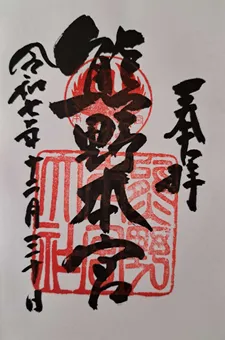 奉拝
熊野本宮
熊野本宮大社
令和七年十二月三十日